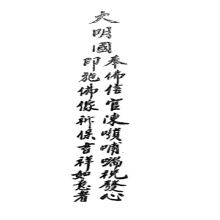 大明國
奉佛信官陳順哨嘱祝發心
印施佛像祈保吉祥如意者